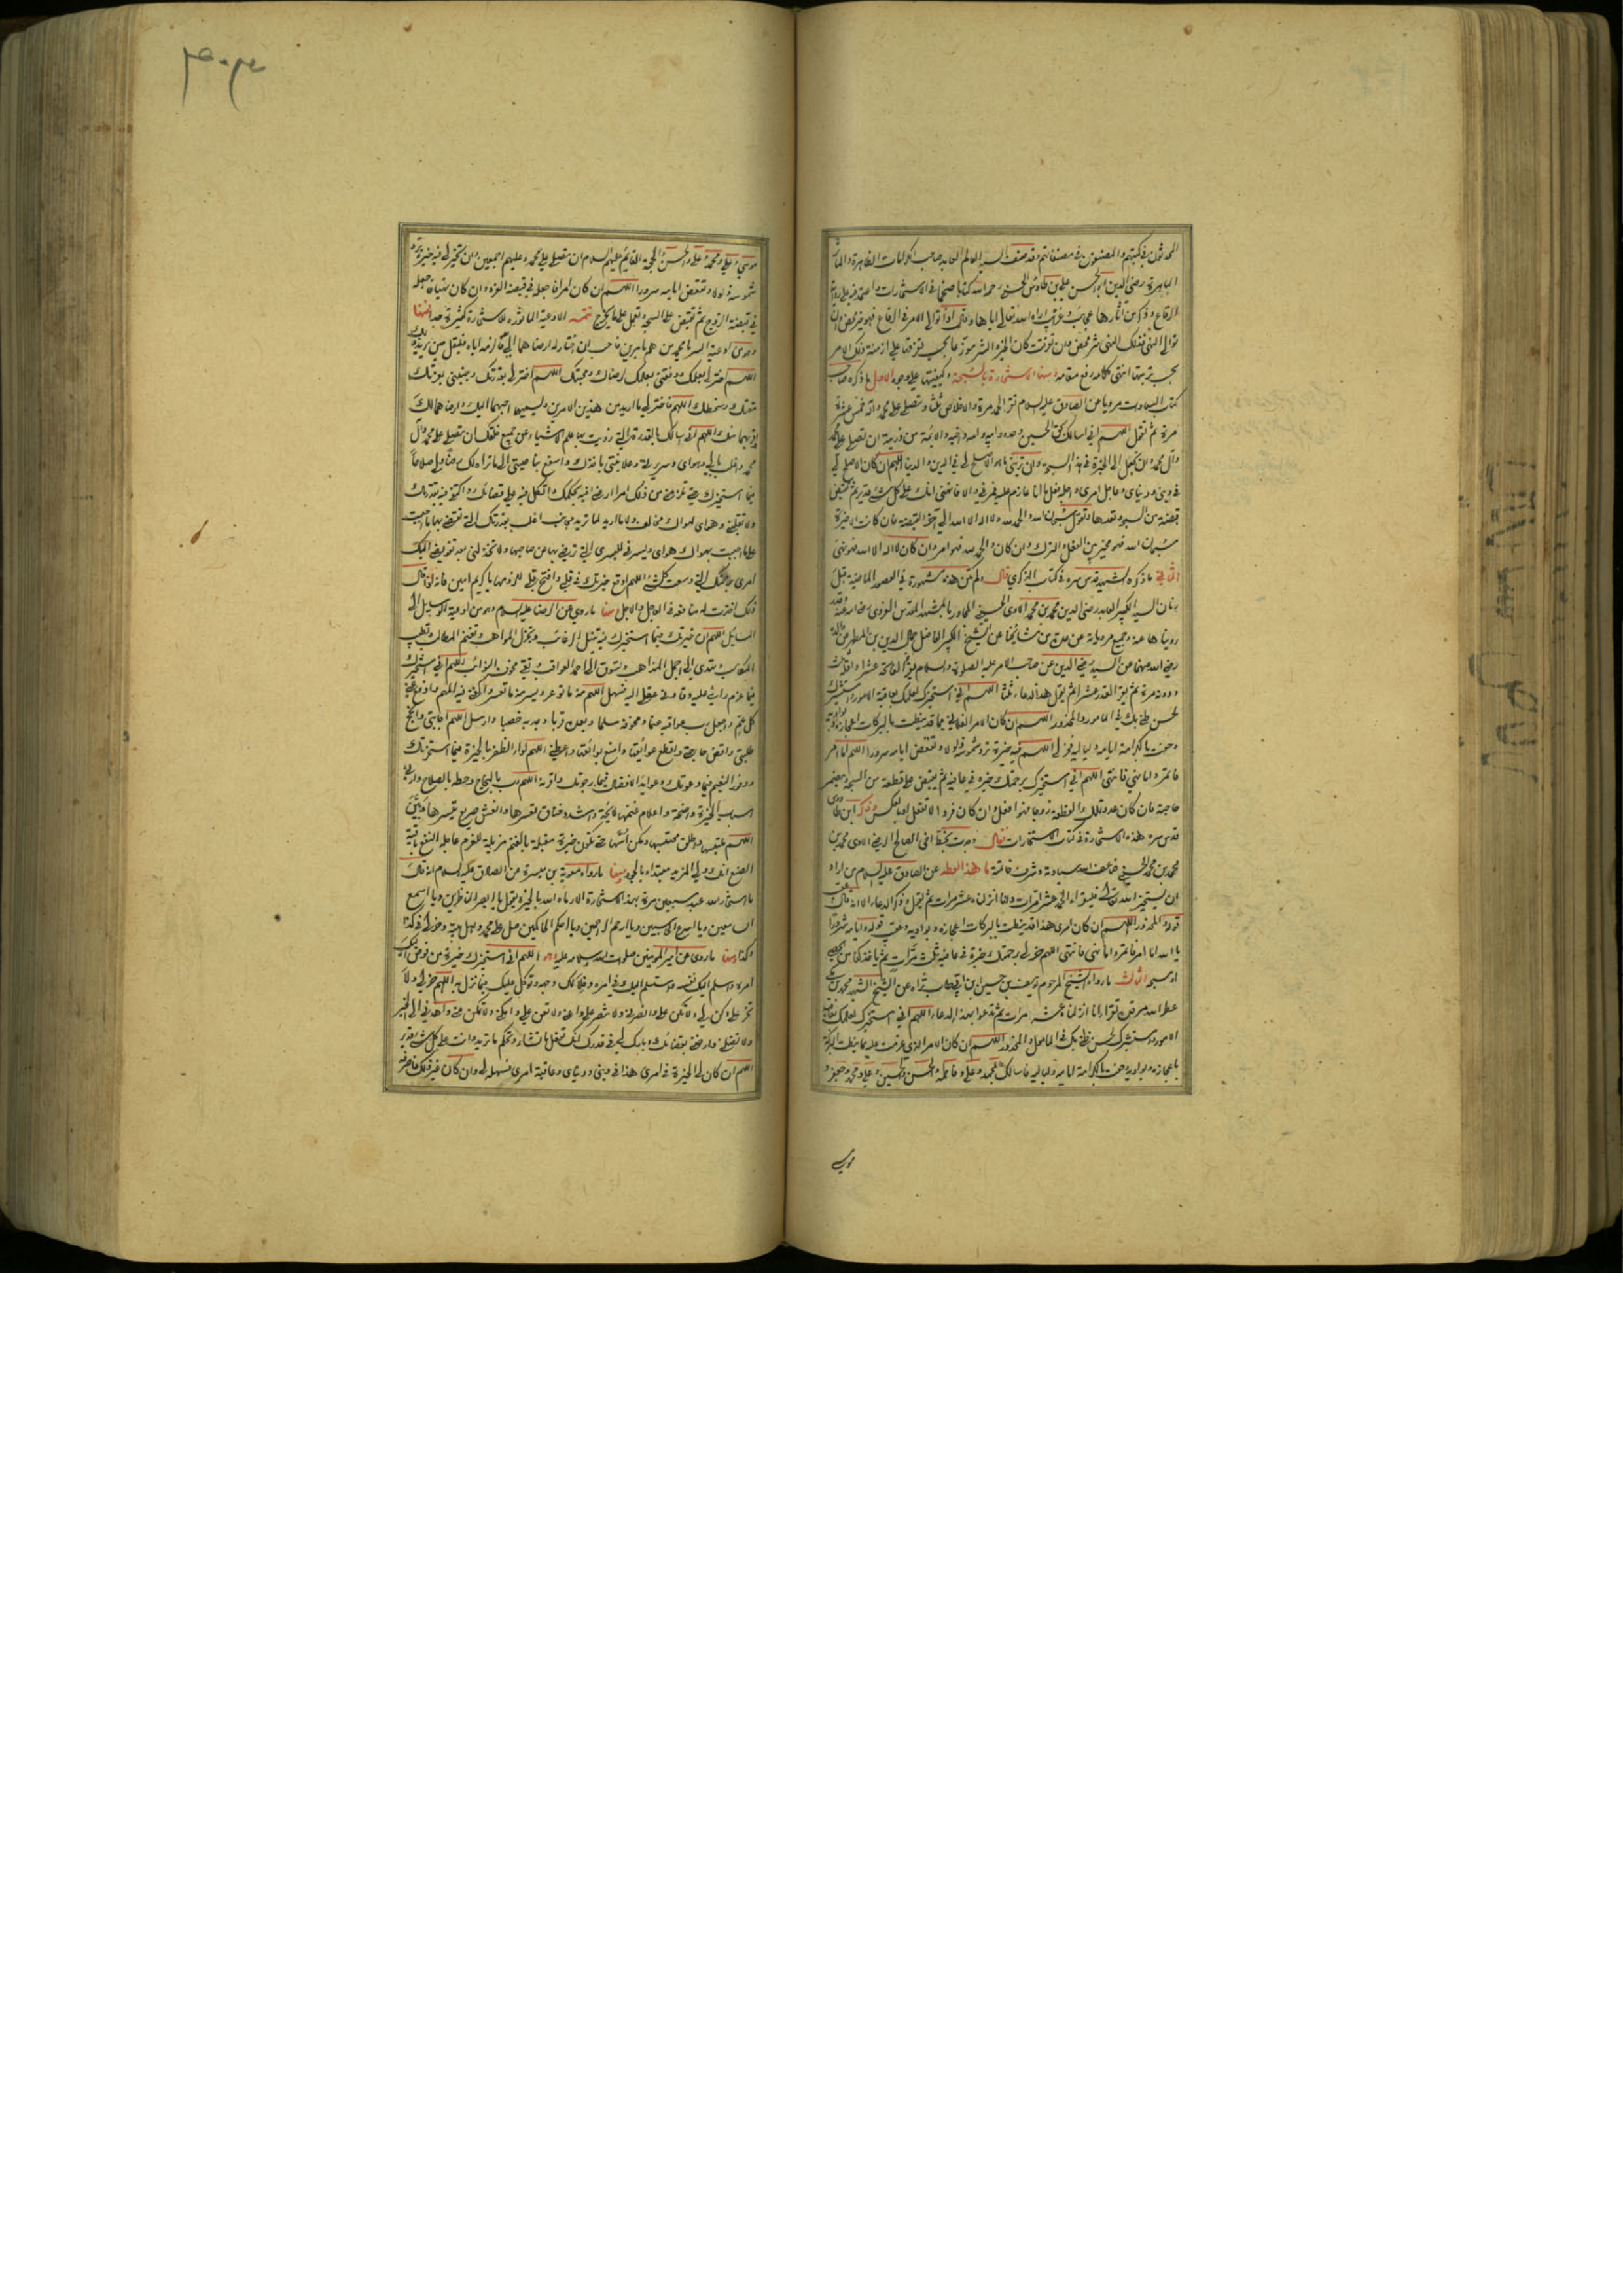 المحدثون في كتبهم والمصنفون في مصنفاتهم وقد صنف السيد العالم العابد صاحب الكرامات الظاهرة والمآثر
الباهرة رضي الدين ابو الحسن علي بن طاوس الحسني رحمه الله كتابا ضخما في الاستخارات واعتمد فيه على رواية
الرقاع وذكر من آثارها عجائب وغرائب اراه الله تعالى اياها وقال اذا توالى الامر في الرقاع فهو خير محض وان
توالى النهي فذلك النهي شر محض وان تفرقت كان الخير والشر موزعا بحسب تفرقها على ازمنة ذلك الامر
بحسب ترتبها انتهى كلامه رفع مقامه ومنها الاستخارة بالسبحة وكيفيتها على وجوه الاول ما ذكره صاحب
كتاب السعادات مرويا عن الصادق عليه السلام تقرأ الحمد مرة والاخلاص ثلثا وتصلي على محمد وآله خمس عشرة
مرة ثم تقول اللهم اني اسالك بحق الحسين وجده وابيه وامه واخيه والائمة من ذريته ان تصلي على محمد
وآل محمد وان تجعل لي الخيرة في هذه السبحة وان تريني ما هو الاصلح لي في الدين والدنيا اللهم ان كان الاصلح لي
في ديني ودنياي وعاجل امري وآجله فعل ما انا عازم عليه فمرني والا فانهني انك على كل شيء قدير ثم تقبض
قبضة من السبحة وتعدها وتقول سبحان الله والحمد لله ولا اله الا الله الى آخر القبضة فان كان الاخيرة
سبحان الله فهو مخير بين الفعل والترك وان كان الحمد لله فهو امر وان كان لا اله الا الله فهو نهي
الثاني ما ذكره الشهيد قدس سره في كتاب الذكرى قال ولم تكن هذه مشهورة في العصور الماضية قبل
زمان السيد الكبير العابد رضي الدين محمد بن محمد الآوي الحسيني المجاور بالمشهد المقدس الغروي رضي الله عنه وقد
رويناها عنه وجميع مروياته عن عدة من مشايخنا عن الشيخ الكبير الفاضل جمال الدين بن المطهر عن والده
رضي الله عنهما عن السيد رضي الدين عن صاحب الامر عليه الصلوة والسلام يقرأ الفاتحة عشرا واقله ثلث
ودونه مرة ثم يقرأ القدر عشرا ثم يقول هذا الدعاء ثلثا اللهم اني استخيرك لعلمك بعاقبة الامور واستشيرك
لحسن ظني بك في المامول والمحذور اللهم ان كان الامر الفلاني مما قد نيطت بالبركة اعجازه وبواديه
وحفت بالكرامة ايامه ولياليه فخر لي اللهم فيه خيرة ترد شموسه ذلولا وتقعض ايامه سرورا اللهم اما امر
فائتمر واما نهي فانتهي اللهم اني استخيرك برحمتك خيرة في عافية ثم يقبض على قطعة من السبحة ويضمر
حاجته فان كان عدد تلك القطعة زوجا فهو افعل وان كان فردا لا تفعل او بالعكس وذكر ابن طاوس
قدس سره هذه الاستخارة في كتاب الاستخارات فقال وجدت بخط اخي الصالح الرضي الآوي محمد بن
محمد بن محمد الحسيني ضاعف الله سيادته وشرف خاتمته ما هذا لفظه عن الصادق عليه السلام من اراد
ان يستخير الله تعالى فليقرأ الحمد عشر مرات وانا انزلناه عشر مرات ثم يقول وذكر الدعاء الا انه قال عقيب
قوله والمحذور اللهم ان كان امري هذا قد نيطت بالبركة اعجازه وبواديه وعقيب قوله وايامه سرورا
يا الله اما امر فائتمر واما نهي فانتهي اللهم خر لي برحمتك خيرة في عافية ثلث مرات ثم ياخذ كفا من الحصى
او سبحة الثالث ما رواه الشيخ المرحوم يوسف بن حسين عن الشيخ الشهيد محمد بن مكي
عطر الله مرقده تقرأ انا انزلناه عشر مرات ثم تدعوا بهذا الدعاء اللهم اني استخيرك لعلمك بعاقبة
الامور واستشيرك لحسن ظني بك في المامول والمحذور اللهم ان كان الامر الذي عزمت عليه مما نيطت البركة
باعجازه وبواديه وحفت بالكرامة ايامه ولياليه فاسالك بمحمد وعلي وفاطمة والحسن والحسين وعلي ومحمد وجعفر و
موسى
موسى وعلي ومحمد وعلي والحسن والحجة القائم عليهم السلام ان تصلي على محمد وعليهم اجمعين وان تخير لي فيه خيرة ترد
شموسه ذلولا وتقعض ايامه سرورا اللهم ان كان امرا فاجعله في قبضة الفرد وان كان نهيا فاجعله
في قبضة الزوج ثم تقبض على السبحة وتعمل على ما يخرج تتمة الادعية الماثورة للاستخارة كثيرة جدا فمنها
وهو من ادعية السر يا محمد من هم بامرين فاحب ان اختار له ارضاهما الي فالزمه اياه فليقل حين يريد ذلك
اللهم اختر لي بعلمك ووفقني بعلمك لرضاك ومحبتك اللهم اختر لي بقدرتك وجنبني بعزتك
مقتك وسخطك اللهم فاختر لي ما اريد من هذين الامرين وتسميهما احبهما اليك وارضاهما لك
واقربهما منك اللهم اني اسالك بالقدرة التي زويت بها علم الاشياء عن جميع خلقك ان تصلي على محمد وآل
محمد واغلب بالي وهواي وسريرتي وعلانيتي باخذك واسفع بناصيتي الى ما تراه لك رضا ولي صلاحا
فيما استخيرك حتى تلزمني من ذلك امرا ارضى فيه بحكمك واتكل فيه على قضائك واكتفي فيه بقدرتك
ولا تقلبني وهواي لهواك مخالف ولا ما اريد لما تريد مجانب اغلب بقدرتك التي تقضي بها ما احببت
على ما احببت بهواك هواي ويسرني لليسرى التي ترضى بها عن صاحبها ولا تخذلني بعد تفويضي اليك
امري برحمتك التي وسعت كل شيء اللهم اوقع خيرتك في قلبي وافتح قلبي للزومها يا كريم آمين فانه اذا قال
ذلك اخترت له منافعه في العاجل والآجل ومنها ما روي عن الرضا عليه السلام وهو من ادعية الوسائل الى
المسائل اللهم ان خيرتك فيما استخيرك فيه تنيل الرغائب وتجزل المواهب وتغنم المطالب وتطيب
المكاسب وتهدي الى اجمل المذاهب وتسوق الى احمد العواقب وتقي مخوف النوائب اللهم اني استخيرك
فيما عزم رايي عليه وقادني عقلي اليه فسهل اللهم منه ما توعر ويسر منه ما تعسر واكفني فيه المهم وادفع عني
كل ملم واجعل رب عواقبه غنما ومخوفه سلما وبعده قربا وجدبه خصبا وارسل اللهم اجابتي وانجح
طلبتي واقض حاجتي واقطع عوائقها وامنع بوائقها واعطني اللهم لواء الظفر بالخيرة فيما استخرتك
ووفور الغنم فيما دعوتك وعوائد الافضال فيما رجوتك واقرنه اللهم رب بالنجاح وحطه بالصلاح وارني
اسباب الخيرة واضحة واعلام غنمها لائحة واشدد خناق تعسرها وانعش صريع تيسرها وبين
اللهم ملتبسها واطلق محتبسها ومكن اسها حتى تكون خيرة مقبلة بالغنم مزيلة للغرم عاجلة النفع باقية
الصنع انك ولي المزيد مبتدئ بالجود ومنها ما رواه معوية بن ميسرة عن الصادق عليه السلام انه قال
ما استخار الله عبد سبعين مرة بهذه الاستخارة الا رماه الله بالخيرة يقول يا ابصر الناظرين ويا اسمع
السامعين ويا اسرع الحاسبين ويا ارحم الراحمين ويا احكم الحاكمين صل على محمد واهل بيته وخر لي في كذا
وكذا ومنها ما روي عن امير المؤمنين صلوات الله وسلامه عليه اللهم اني استخيرك خيرة من فوض اليك
امره واسلم اليك نفسه واستسلم اليك في امره وخلا لك وجهه وتوكل عليك فيما نزل به اللهم خر لي ولا
تخر علي وكن لي ولا تكن علي وانصرني ولا تنصر علي واعني ولا تعن علي وامكني ولا تمكن مني واهدني الى الخير
ولا تضلني وارضني بقضائك وبارك لي في قدرك انك تفعل ما تشاء وتحكم ما تريد وانت على كل شيء قدير
اللهم ان كان لي الخيرة في امري هذا في ديني ودنياي وعاقبة امري فسهله لي وان كان غير ذلك فاصرفه